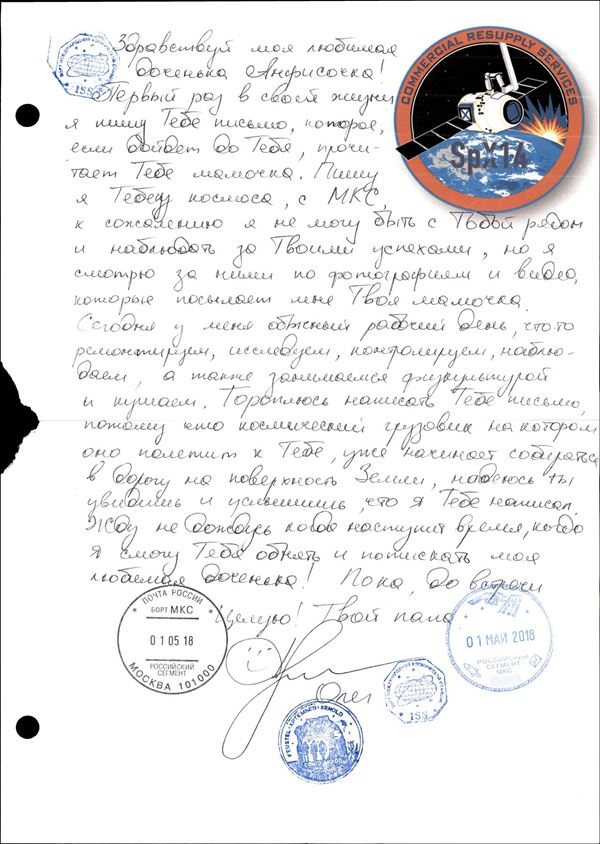 Здравствуй моя любимая
доченька Анфисочка!
Первый раз в своей жизни
я пишу Тебе письмо, которое,
если дойдет до Тебя, прочи-
тает Тебе мамочка. Пишу
я Тебе из космоса, с МКС,
к сожалению я не могу быть с Тобой рядом
и наблюдать за Твоими успехами, но я
смотрю за ними по фотографиям и видео,
которые посылает мне Твоя мамочка.
Сегодня у меня обычный рабочий день, что-то
ремонтируем, исследуем, контролируем, наблю-
даем, а также занимаемся физкультурой
и кушаем. Тороплюсь написать Тебе письмо,
потому что космический грузовик на котором
оно полетит к Тебе, уже начинает собираться
в дорогу на поверхность Земли, надеюсь ты
увидишь и услышишь, что я Тебе написал.
Жду не дождусь когда наступит время, когда
я смогу Тебя обнять и потискать моя
любимая доченька! Пока, до встречи
Целую! Твой папа
Олег
COMMERCIAL RESUPPLY SERVICES
SpX14
ISS
ПОЧТА РОССИИ
БОРТ МКС
01 05 18
РОССИЙСКИЙ
СЕГМЕНТ
МОСКВА 101000
01 МАЙ 2018
РОССИЙСКИЙ
СЕГМЕНТ
МКС
ISS
FEUSTEL • АРТЕМЬЕВ • ARNOLD